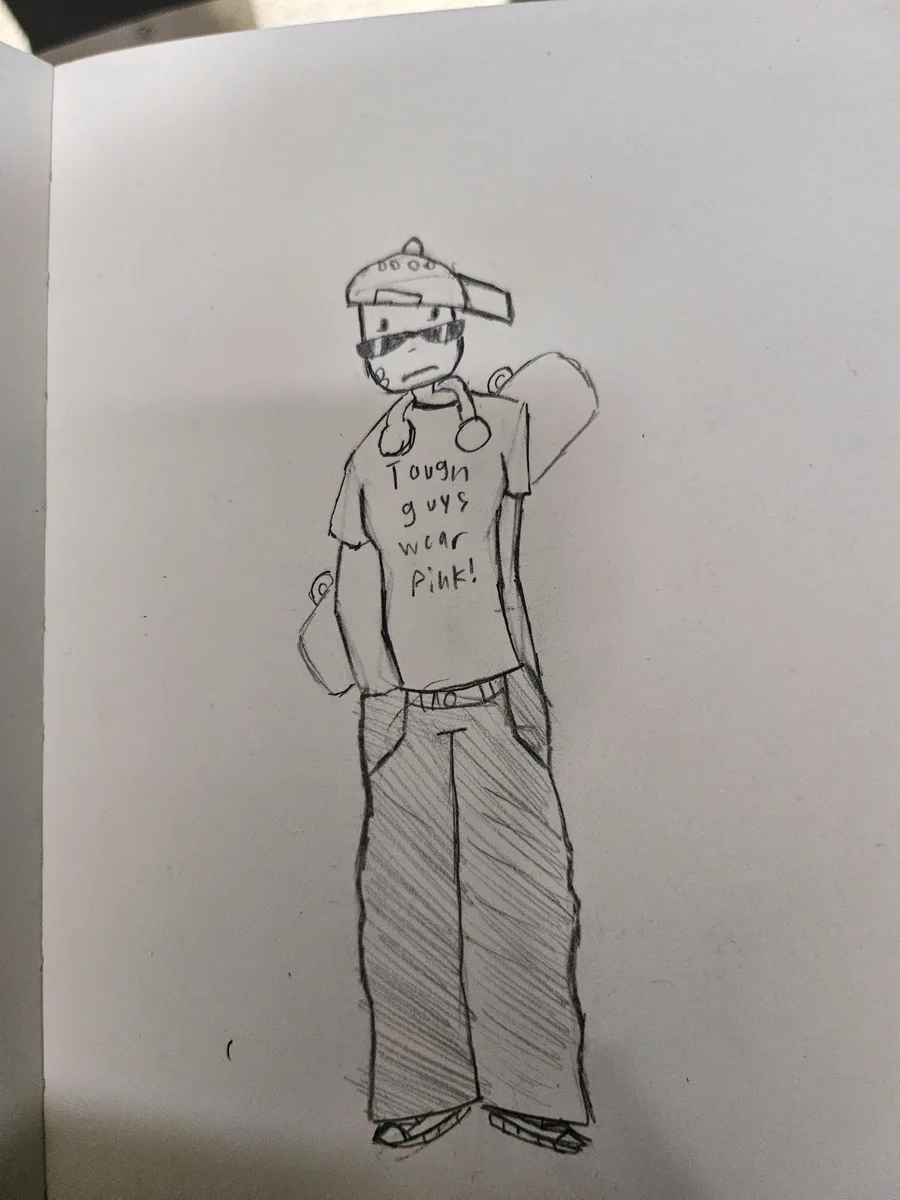 Tough
guys
wear
pink!